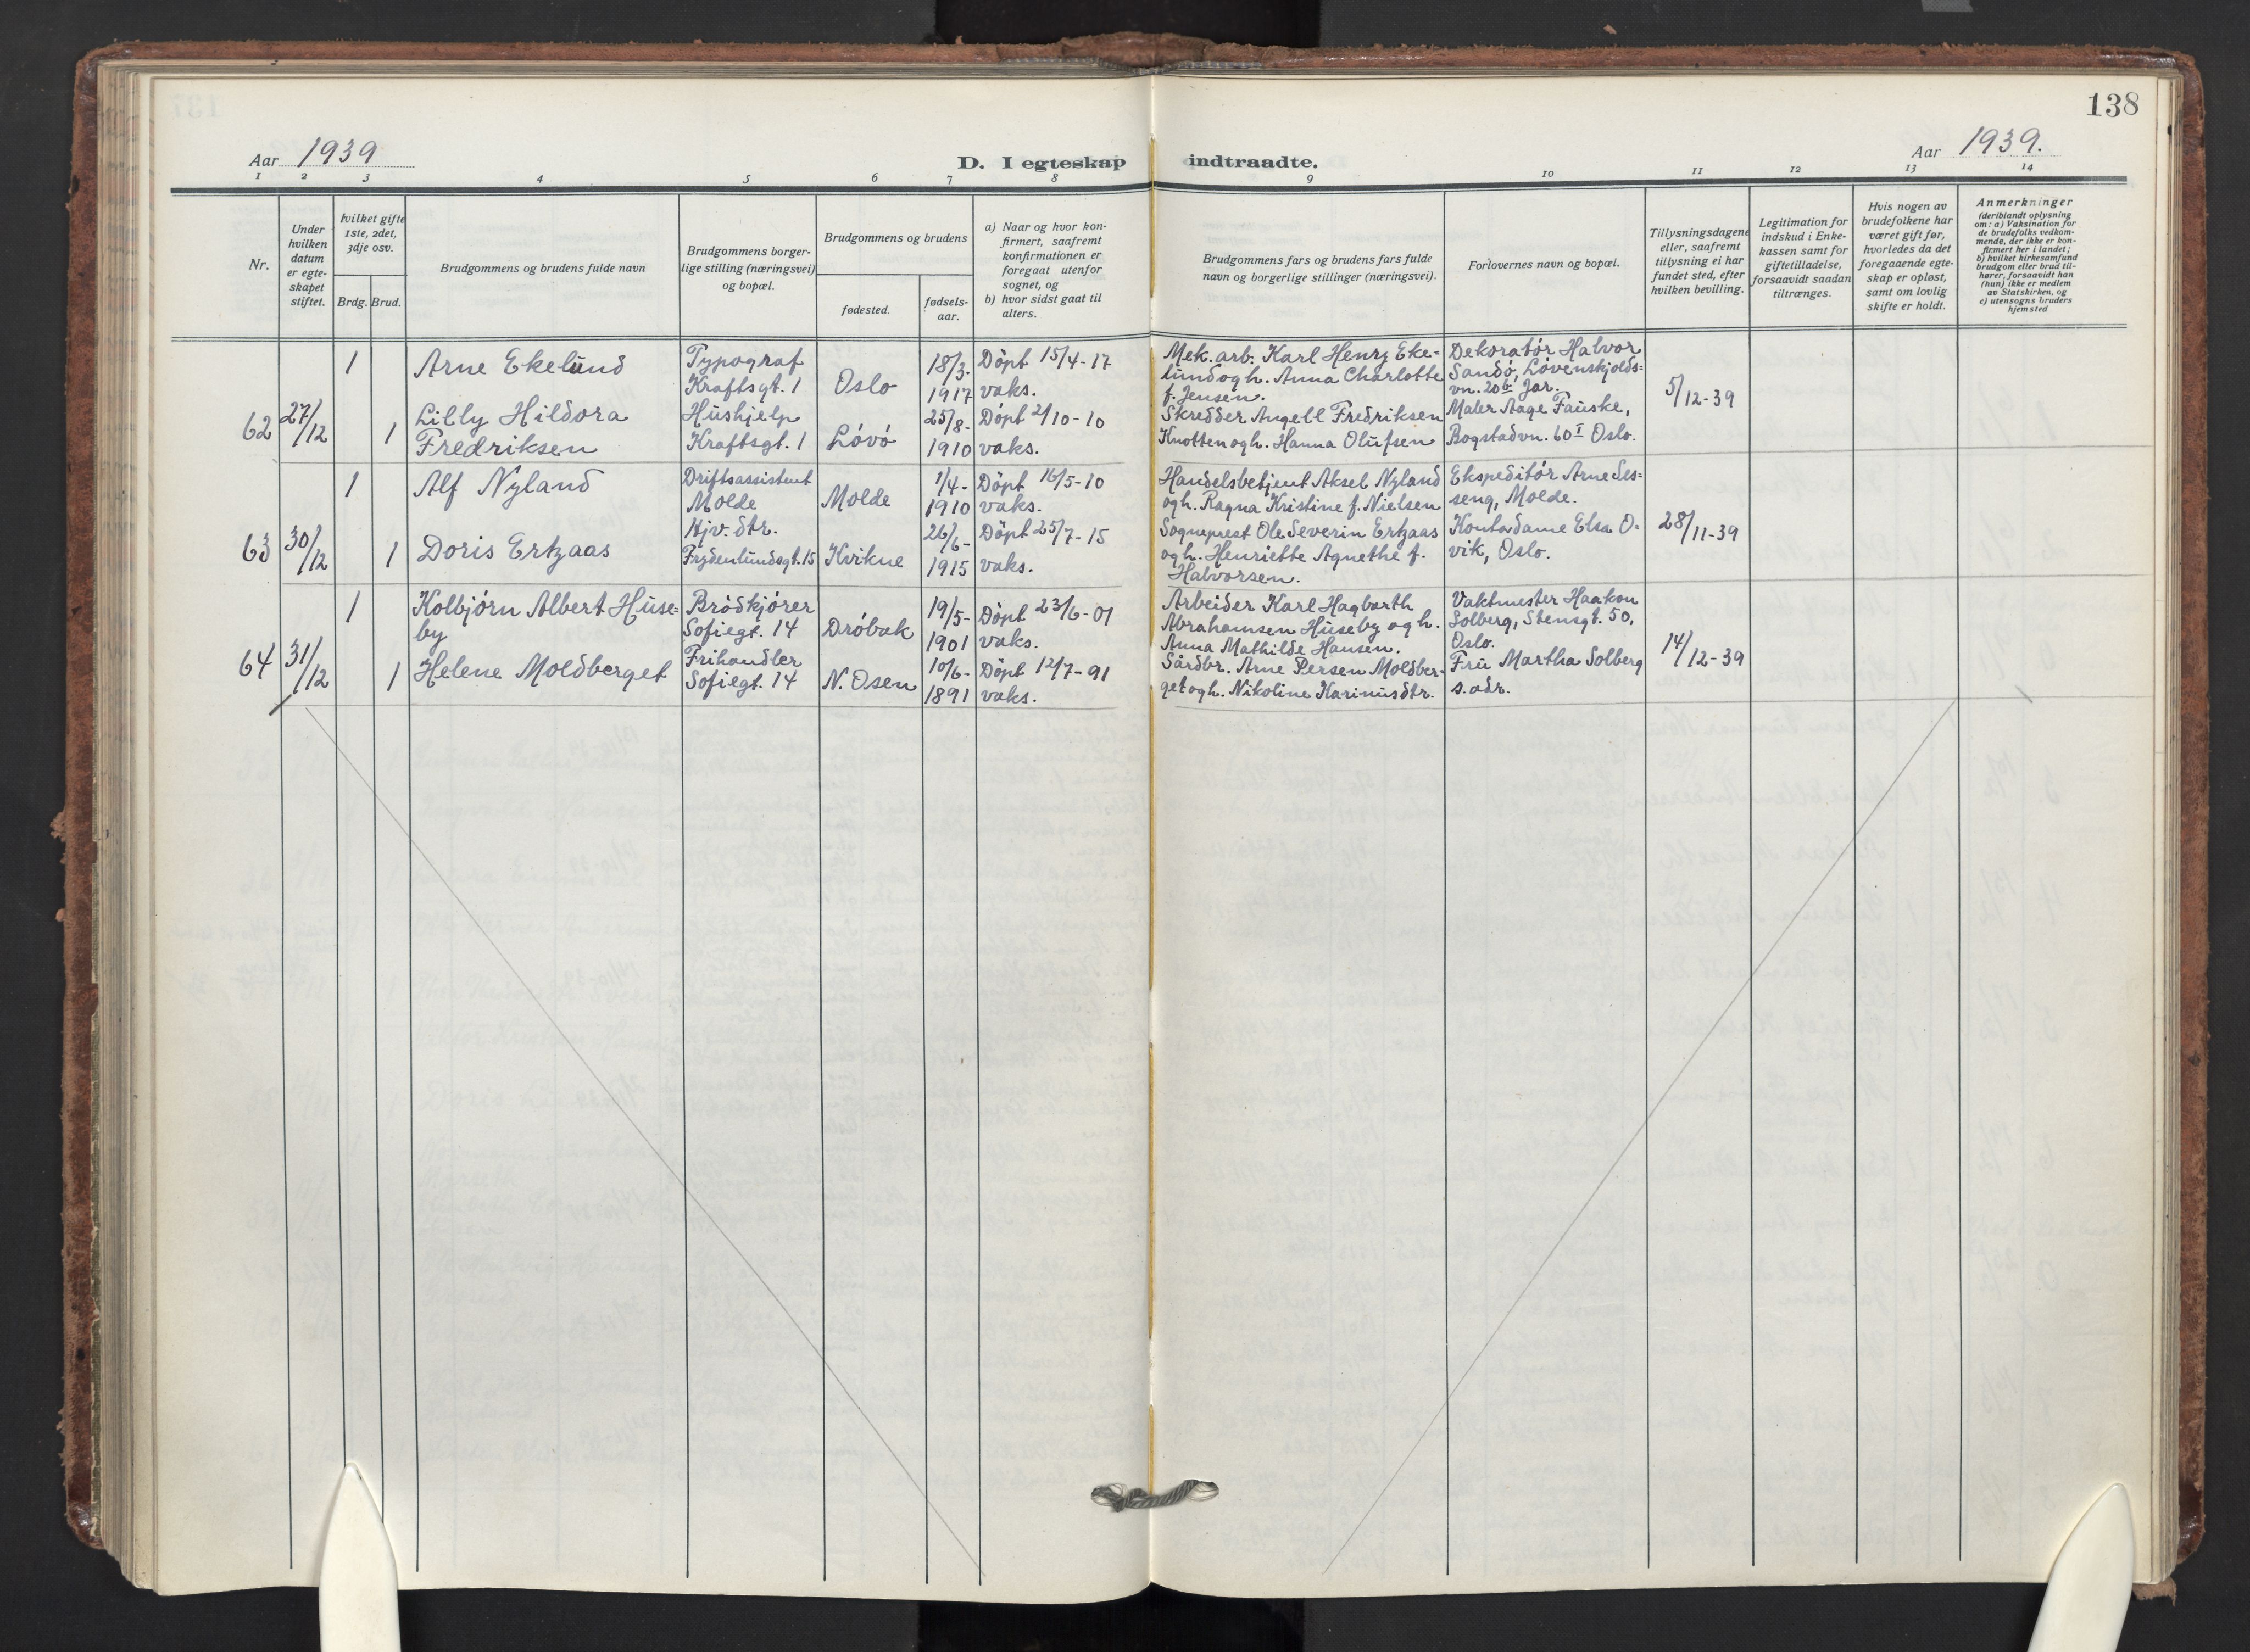 138
Aar 1939
D. I egteskap indtraadte.
Aar 1939.
1 2 3 4 5 6 7 8 9 10 11 12 13 14
Nr.
Under
hvilken
datum
er egte-
skapet
stiftet.
hvilket gifte
1ste, 2det,
3dje osv.
Brdg. Brud.
Brudgommens og brudens fulde navn
Brudgommens borger-
lige stilling (næringsvei)
og bopæl.
Brudgommens og brudens
fødested.
fødsels-
aar.
a) Naar og hvor kon-
firmert, saafremt
konfirmationen er
foregaat utenfor
sognet, og
b) hvor sidst gaat til
alters.
Brudgommens fars og brudens fars fulde
navn og borgerlige stillinger (næringsvei).
Forlovernes navn og bopæl.
Tillysningsdagene
eller, saafremt
tillysning ei har
fundet sted, efter
hvilken bevilling.
Legitimation for
indskud i Enke-
kassen samt for
giftetilladelse,
forsaavidt saadan
tiltrænges.
Hvis nogen av
brudefolkene har
været gift før,
hvorledes da det
foregaaende egte-
skap er opløst,
samt om lovlig
skifte er holdt.
Anmerkninger
(deriblandt oplysning
om: a) Vaksination for
de brudefolks vedkom-
mende, der ikke er kon-
firmert her i landet;
b) hvilket kirkesamfund
brudgom eller brud til-
hører, forsaavidt han
(hun) ikke er medlem
av Statskirken, og
c) utensogns bruders
hjemsted
62
27/12
1
Arne Ekelund
Typograf
Kraftsgt. 1
Oslo
18/3.
1917
Döpt 15/4-17
vaks.
Mek. arb. Karl Henry Eke=
lund og h. Anna Charlotte
f. Jensen.
Dekoratör Halvor
Sandö, Lövenskjolds=
vn. 20b Jar.
5/12-39
1
Lilly Hildora
Fredriksen
Hushjelp
Kraftsgt. 1
Lövö
25/8-
1910
Döpt 2/10-10
vaks.
Skredder Angell Fredriksen
Knotten og h. Hanna Olufsen
Maler Aage Fauske,
Bogstadvn. 60 I Oslo.
63
30/12
1
Alf Nyland
Driftsassistent
Molde
Molde
1/4-
1910
Döpt 16/5-10
vaks.
Handelsbetjent Aksel Nyland
og h. Ragna Kristine f. Nielsen
Ekspeditör Arne Ses=
seng, Molde.
28/11-39
1
Doris Ertzaas
Hjv. dtr.
Frydenlundsgt. 15
Kvikne
26/6-
1915
Döpt 25/7-15
vaks.
Sogneprest Ole Severin Ertzaas
og h. Henriette Agnethe f.
Halvorsen.
Kontordame Elsa O-
vik, Oslo.
64
31/12
1
Kolbjörn Albert Huse=
by
Brödkjörer
Sofiegt. 14
Dröbak
19/5-
1901
Döpt 23/6-01
vaks.
Arbeider Karl Hagbarth
Abrahamsen Huseby og h.
Anna Mathilde Hansen.
Vaktmester Haakon
Solberg, Stensgt. 50,
Oslo.
14/12-39
1
Helene Moldberget
Frihandler
Sofiegt. 14
N. Osen
10/6-
1891
Döpt 12/7-91
vaks.
Gårdbr. Arne Persen Moldber-
get og h. Nikoline Karinusdtr.
Fru Martha Solberg
s. adr.